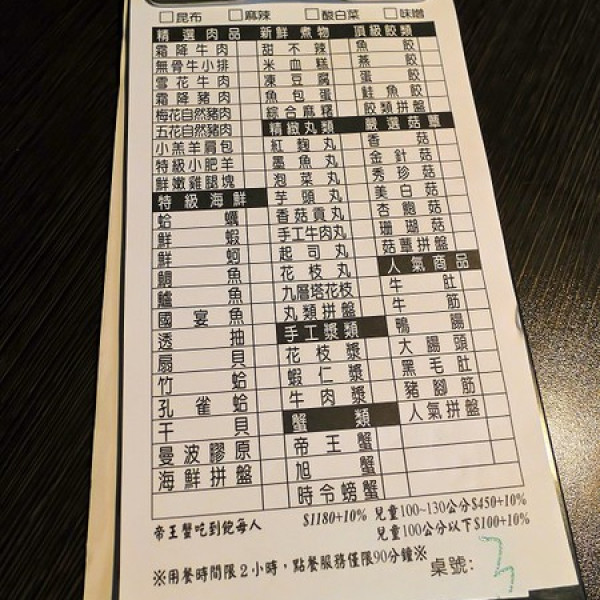 昆布 麻辣 酸白菜 味噌
精選肉品
霜降牛肉
無骨牛小排
雪花牛肉
霜降豬肉
梅花自然豬肉
五花自然豬肉
小羔羊肩包
特級小肥羊
鮮嫩雞腿塊
特級海鮮
蛤蠣
鮮蝦
鮮蚵
鯛魚
鱸魚
國宴魚
透抽
扇貝
竹蛤
孔雀蛤
干貝
曼波膠原
海鮮拼盤
新鮮煮物
甜不辣
米血糕
凍豆腐
魚包蛋
綜合麻糬
精緻丸類
紅麴丸
墨魚丸
泡菜丸
芋頭丸
香菇貢丸
手工牛肉丸
起司丸
花枝丸
九層塔花枝
丸類拼盤
手工漿類
花枝漿
蝦仁漿
牛肉漿
蟹類
帝王蟹
旭蟹
時令螃蟹
頂級餃類
魚餃
燕餃
蛋餃
鮭魚餃
餃類拼盤
嚴選菇蕈
香菇
金針菇
秀珍菇
美白菇
杏鮑菇
珊瑚菇
菇蕈拼盤
人氣商品
牛肚
牛筋
鴨腸
大腸頭
黑毛肚
豬腳筋
人氣拼盤
帝王蟹吃到飽每人 $1180+10% 兒童100~130公分$450+10%
兒童100公分以下$100+10%
※用餐時間限2小時，點餐服務僅限90分鐘※ 桌號: